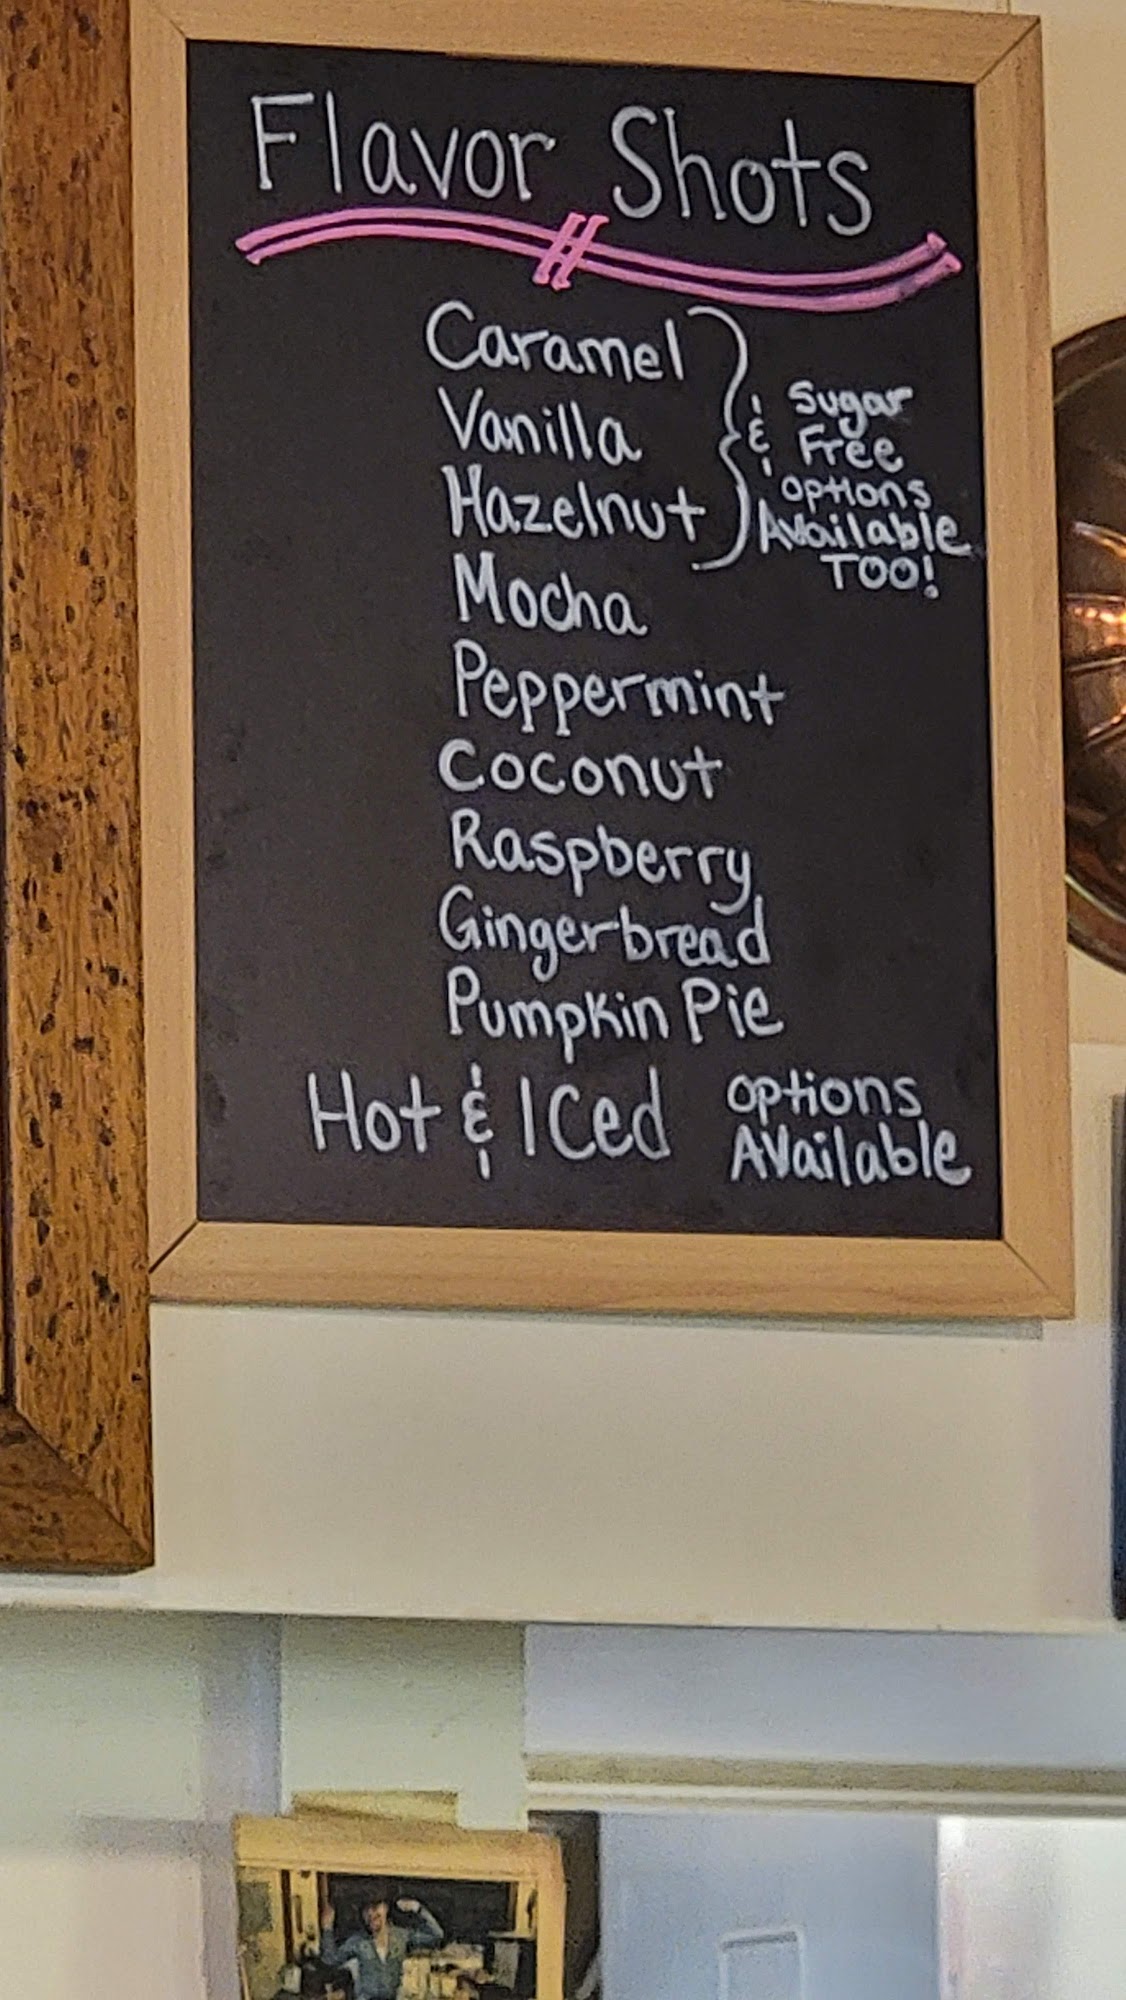 Flavor Shots
Caramel
Vanilla
Hazelnut
& Sugar
Free
options
Available
TOO!
Mocha
Peppermint
Coconut
Raspberry
Gingerbread
Pumpkin Pie
Hot & Iced options
Available